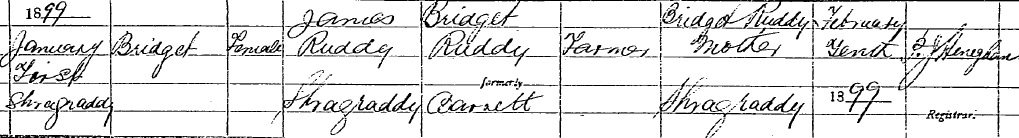 1899 James Bridget Bridget Ruddy February
January Bridget Female Ruddy Ruddy Farmer Mother Tenth P. J. Heneghan
First
formerly
Shragraddy Shragraddy Barrett Shragraddy 1899
Registrar.